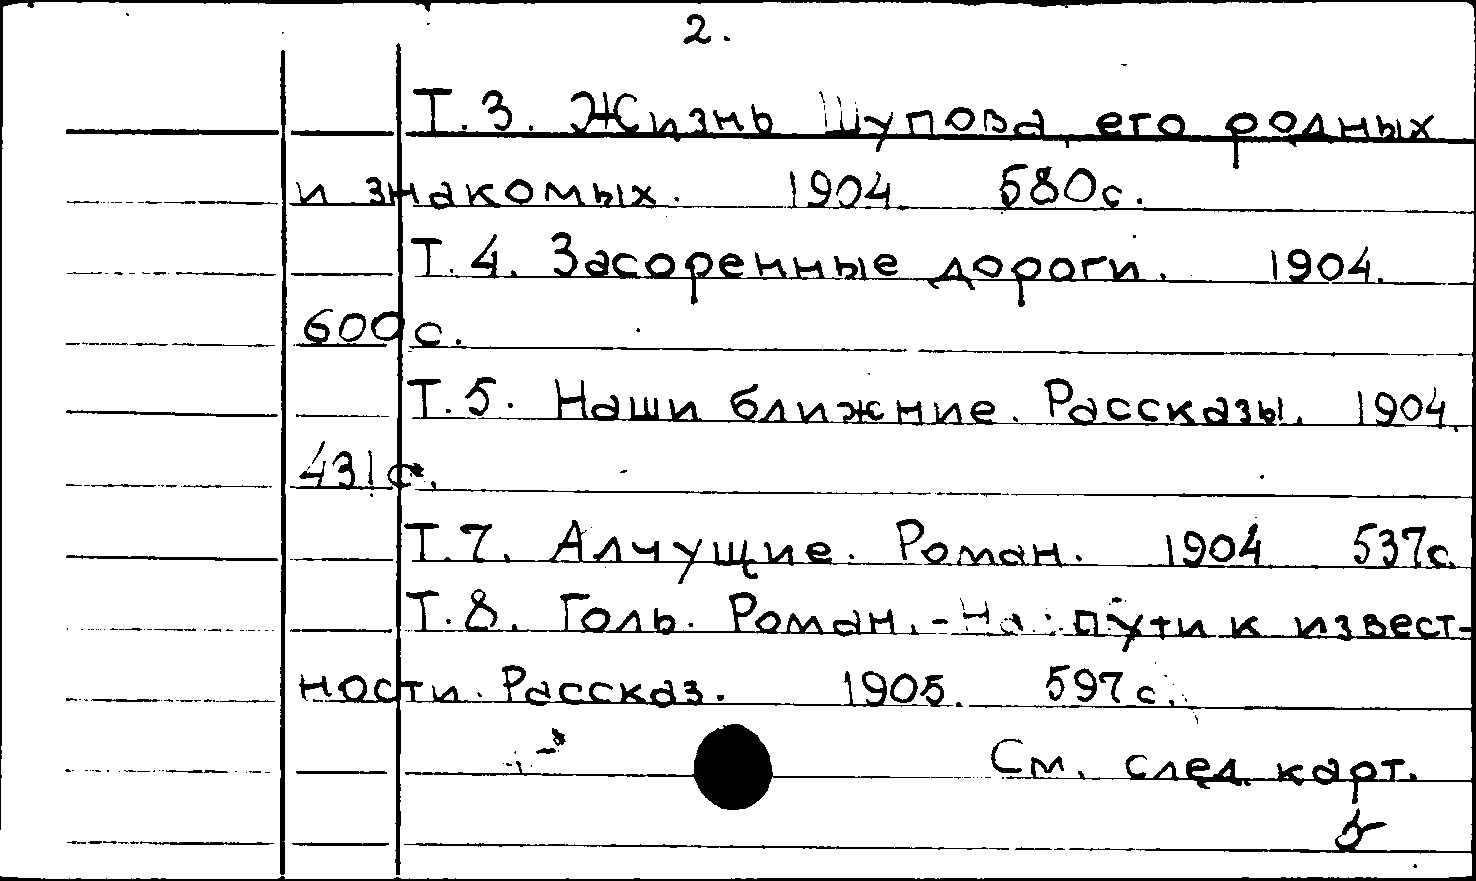 2.
Т.3. Жизнь Шупова, его родных
и знакомых. 1904. 580с.
Т.4. Засоренные дороги. 1904.
600с.
Т.5. Наши ближние. Рассказы. 1904.
431с.
Т.7. Алчущие. Роман. 1904 537с.
Т.8. Голь. Роман. - На пути к извест-
ности. Рассказ. 1905. 597с.
См. след. карт.